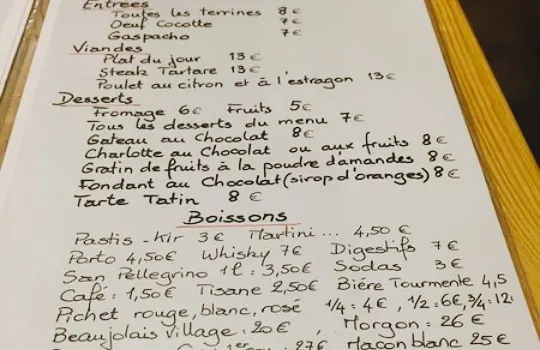 Entrées
Toutes les terrines 8€
Oeuf Cocotte 7€
Gaspacho 7€
Viandes
Plat du jour 13€
Steak Tartare 13€
Poulet au citron et à l'estragon 13€
Desserts
Fromage 6€ Fruits 5€
Tous les desserts du menu 7€
Gateau au Chocolat 8€
Charlotte au Chocolat ou aux fruits 8€
Gratin de fruits à la poudre d'amandes 8€
Fondant au Chocolat (sirop d'oranges) 8€
Tarte Tatin 8€
Boissons
Pastis - Kir 3€ Martini... 4,50€
Porto 4,50€ Whisky 7€ Digestifs 7€
San Pellegrino 1l : 3,50€ Sodas 3€
Café : 1,50€ Tisane 2,50€ Bière Tourmente 4,5
Pichet rouge, blanc, rosé 1/4 : 4€, 1/2 : 6€, 3/4 : 12
Beaujolais Village : 20€, Morgon : 26€
1er : 27€ Macon blanc 25€